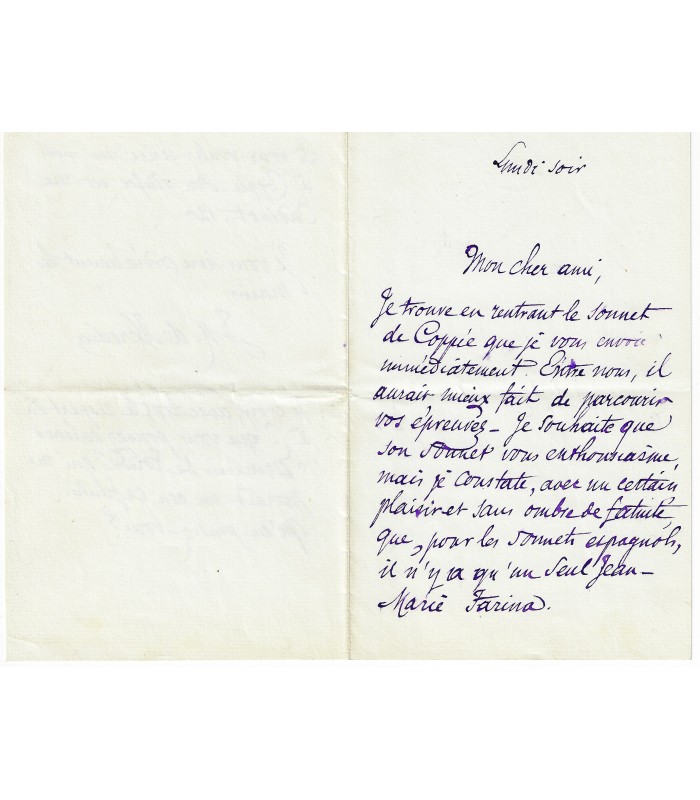 Lundi soir
Mon cher ami,
Je trouve en rentrant le sonnet
de Coppée que je vous envoie
immédiatement. Entre nous, il
aurait mieux fait de parcourir
vos épreuves – Je souhaite que
son sonnet vous enthousiasme,
mais je constate, avec un certain
plaisir et sans ombre de fatuité,
que, pour les sonnets espagnols,
il n'y a qu'un seul Jean-
Marie Farina.